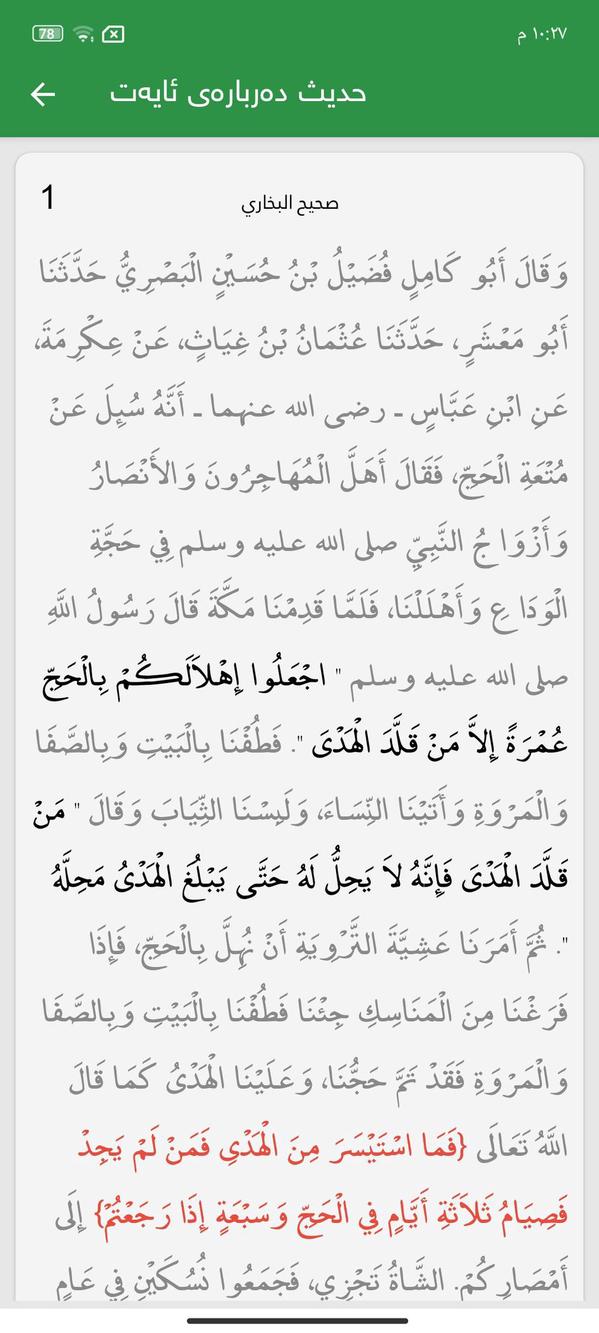 78
١٠:٢٧ م
حدیث دەربارەی ئایەت
صحيح البخاري
1
وَقَالَ أَبُو كَامِلٍ فُضَيْلُ بْنُ حُسَيْنٍ الْبَصْرِيُّ حَدَّثَنَا
أَبُو مَعْشَرٍ، حَدَّثَنَا عُثْمَانُ بْنُ غِيَاثٍ، عَنْ عِكْرِمَةَ،
عَنِ ابْنِ عَبَّاسٍ ـ رضى الله عنهما ـ أَنَّهُ سُئِلَ عَنْ
مُتْعَةِ الْحَجِّ، فَقَالَ أَهَلَّ الْمُهَاجِرُونَ وَالأَنْصَارُ
وَأَزْوَاجُ النَّبِيِّ صلى الله عليه وسلم فِي حَجَّةِ
الْوَدَاعِ وَأَهْلَلْنَا، فَلَمَّا قَدِمْنَا مَكَّةَ قَالَ رَسُولُ اللَّهِ
صلى الله عليه وسلم " اجْعَلُوا إِهْلاَلَكُمْ بِالْحَجِّ
عُمْرَةً إِلاَّ مَنْ قَلَّدَ الْهَدْىَ ". فَطُفْنَا بِالْبَيْتِ وَبِالصَّفَا
وَالْمَرْوَةِ وَأَتَيْنَا النِّسَاءَ، وَلَبِسْنَا الثِّيَابَ وَقَالَ " مَنْ
قَلَّدَ الْهَدْىَ فَإِنَّهُ لاَ يَحِلُّ لَهُ حَتَّى يَبْلُغَ الْهَدْىُ مَحِلَّهُ
". ثُمَّ أَمَرَنَا عَشِيَّةَ التَّرْوِيَةِ أَنْ نُهِلَّ بِالْحَجِّ، فَإِذَا
فَرَغْنَا مِنَ الْمَنَاسِكِ جِئْنَا فَطُفْنَا بِالْبَيْتِ وَبِالصَّفَا
وَالْمَرْوَةِ فَقَدْ تَمَّ حَجُّنَا، وَعَلَيْنَا الْهَدْىُ كَمَا قَالَ
اللَّهُ تَعَالَى {فَمَا اسْتَيْسَرَ مِنَ الْهَدْىِ فَمَنْ لَمْ يَجِدْ
فَصِيَامُ ثَلاَثَةِ أَيَّامٍ فِي الْحَجِّ وَسَبْعَةٍ إِذَا رَجَعْتُمْ} إِلَى
أَمْصَارِكُمْ. الشَّاةُ تَجْزِي، فَجَمَعُوا نُسُكَيْنِ فِي عَامٍ